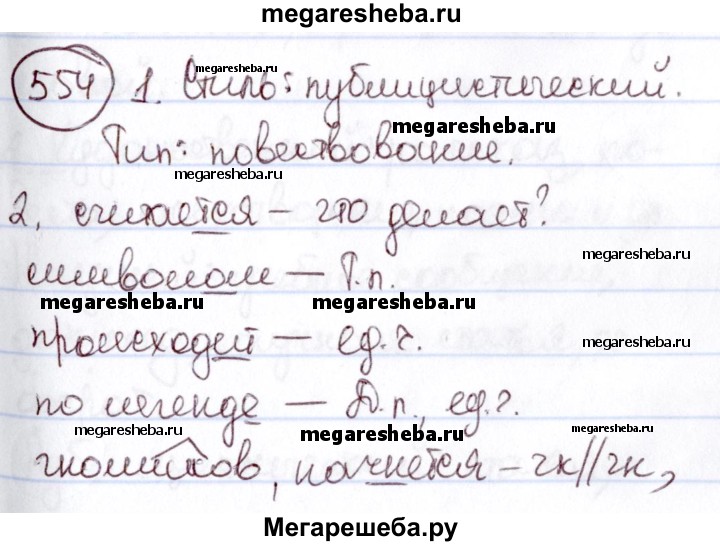 megaresheba.ru
554 1. Стиль: публицистический.
megaresheba.ru
megaresheba.ru
Тип: повествование.
megaresheba.ru
2, считается – что делает?
megaresheba.ru
символом – Т.п.
megaresheba.ru megaresheba.ru
происходит – ед.ч.
по легенде – Д.п., ед.ч.
megaresheba.ru megaresheba.ru megaresheba.ru
гномиков, начнется – чн//чн,
Мегарешеба.ру